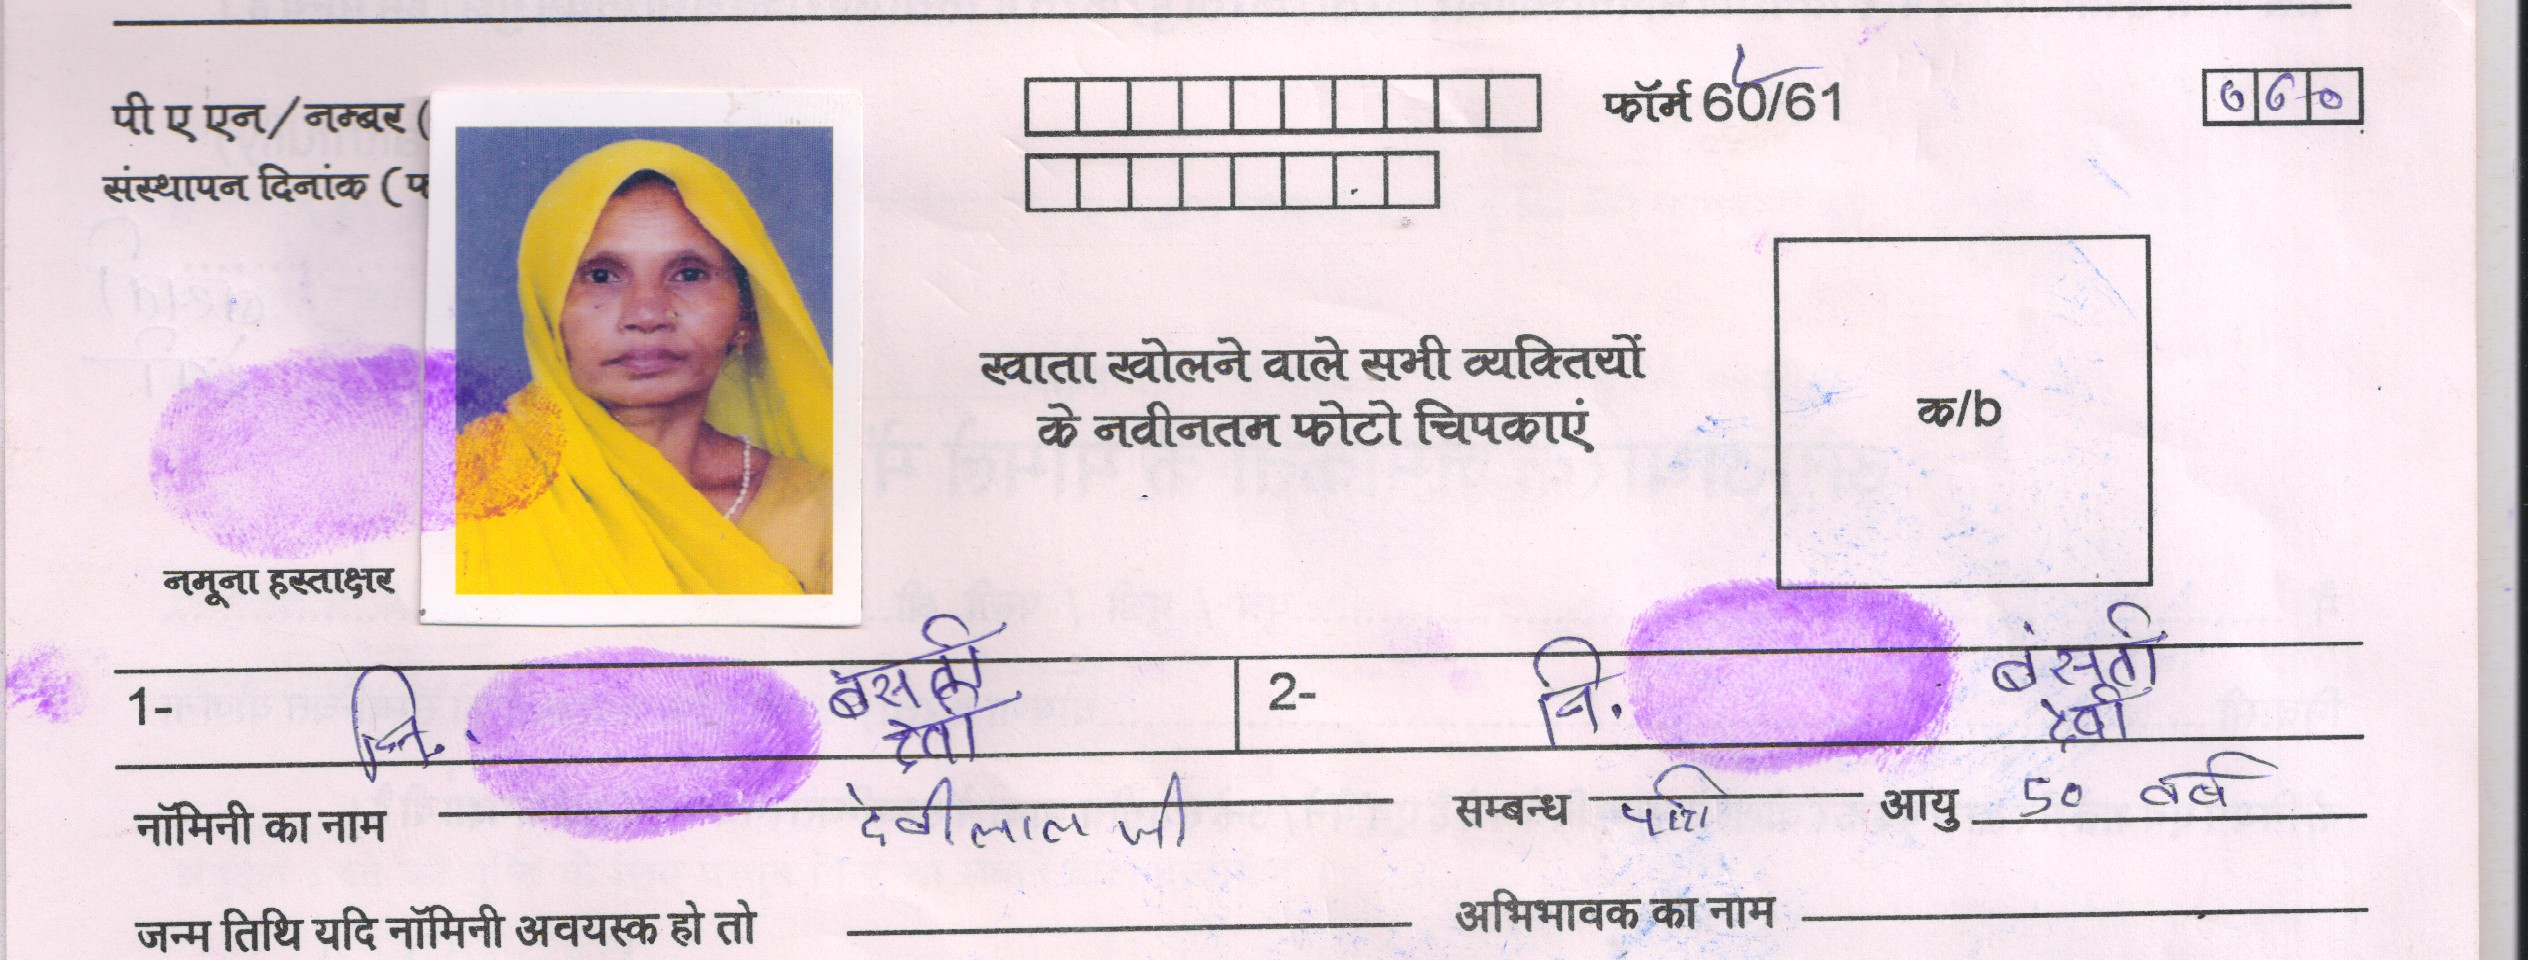 पी ए एन/नम्बर (
फॉर्म 60/61
संस्थापन दिनांक (
खाता खोलने वाले सभी व्यक्तियों
के नवीनतम फोटो चिपकाएं
क/b
नमूना हस्ताक्षर
1- नि. बंसती देवी
2- नि. बंसती देवी
नॉमिनी का नाम देवीलाल जी सम्बन्ध पति आयु 50 वर्ष
जन्म तिथि यदि नॉमिनी अवयस्क हो तो अभिभावक का नाम